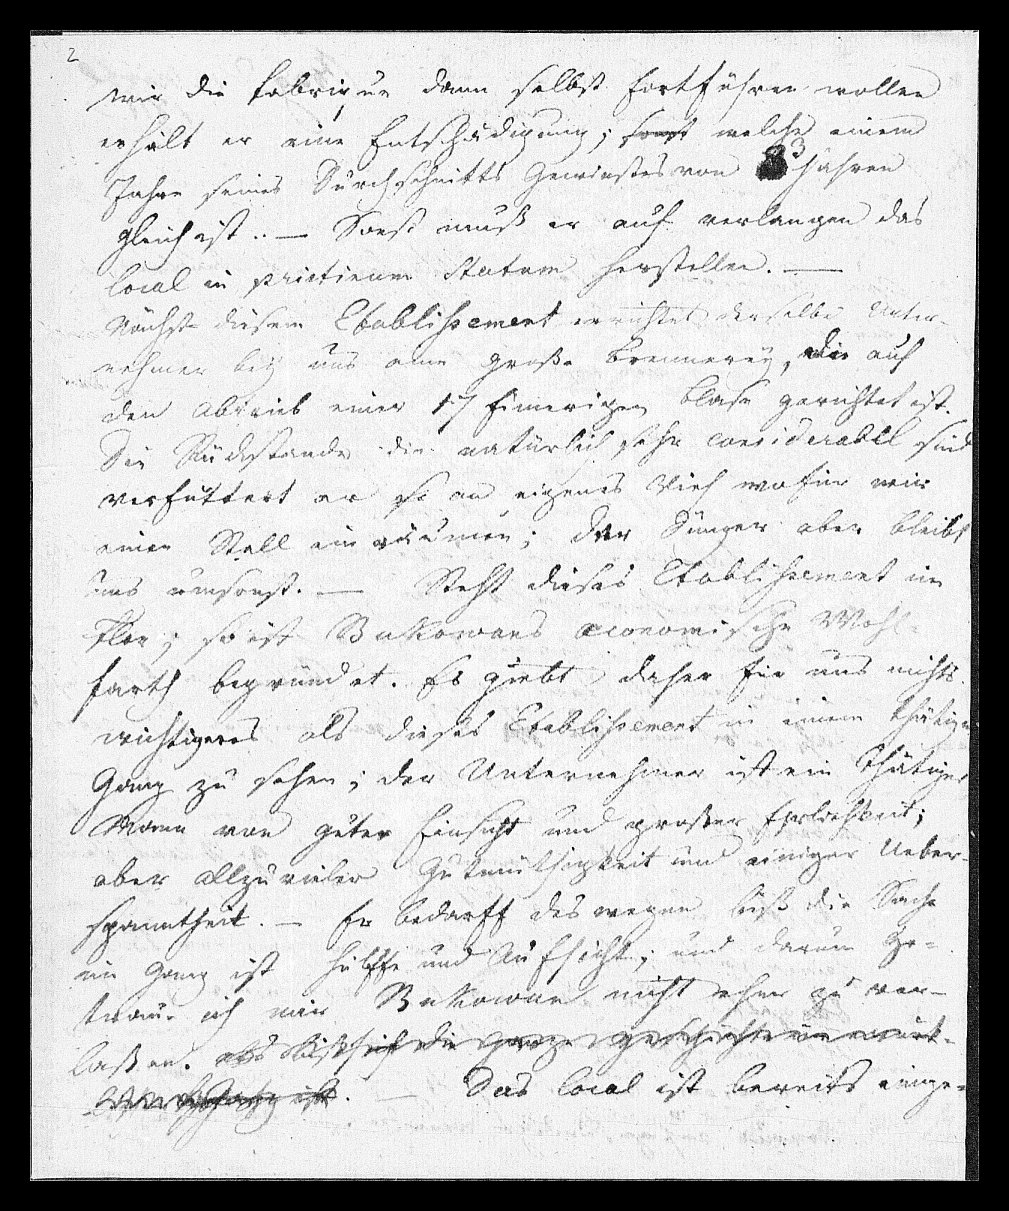 2
wir die Fabrique dann selbst fortführen wollen
erhält er eine Entschädigung; welche einem
Jahre seines Durchschnitts Gewinstes von 3 Jahren
gleich ist.. — Sonst muß er auf verlangen das
local in pristinum statum herstellen. —
Nächst diesem Etablissement errichtet derselbe Unter-
nehmer bey uns eine große Brennerey, die auf
den Abtrieb einer 17 Eimerigen Blase gerichtet ist.
Die Rückstände die natürlich sehr considerabel sind
verfuttert er an eigenes Vieh wofür wir
einen Stall einräumen; der Dünger aber bleibt
uns umsonst. — Steht dieses Etablissement im
Flor; so ist Bukowans oeconomische Wohl-
farth begründet. Es giebt daher für uns nichts
wichtigeres als dieses Etablissement in einem thätigen
Gang zu sehen; der Unternehmer ist ein thätiger
Mann von guter Einsicht und großer Ehrlichkeit;
aber allzuvieler Gutmüthigkeit und einiger Ueber-
spanntheit. — Er bedarff deswegen biß die Sache
im Gang ist Hülffe und Aufsicht; und darum ge-
traue ich mir Bukowan nicht eher zu ver-
laßen. als biß sich die ganze geschichte in
ist. — Das local ist bereits einge-